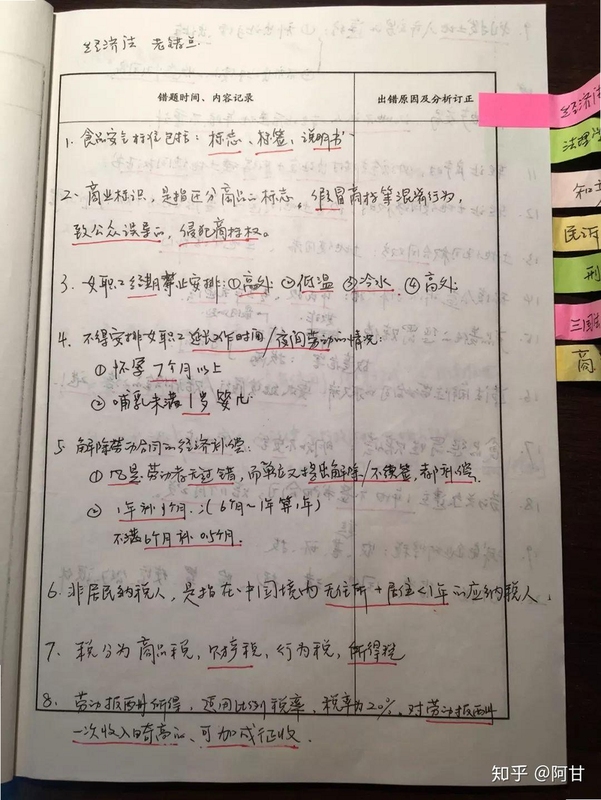 经济法 老错点
错题时间、内容记录 出错原因及分析订正
1. 食品安全标信包括：标志、标签、说明书
2. 商业标识，是指区分商品的标志。假冒商标等混淆行为，
致公众误导的，侵犯商标权。
3. 女职工经期禁止安排：①高处 ②低温 ③冷水 ④高处
4. 不得安排女职工延长工作时间/夜间劳动的情况：
① 怀孕7个月以上
② 哺乳未满1岁婴儿
5. 解除劳动合同的经济补偿：
① 凡是劳动者无过错，而单位又提出解除/不续签，都补偿。
② 1年补1个月.：(6个月~1年算1年)
不满6个月补0.5个月.
6. 非居民纳税人，是指在中国境内无住所+居住<1年的应纳税人.
7. 税分为商品税，财税，行为税，所得税
8. 劳动报酬所得，适用比例税率，税率为20%. 对劳动报酬
一次收入畸高的、可加成征收.
经济法
法理学
知
民诉
刑
三国
商
知乎 @阿甘